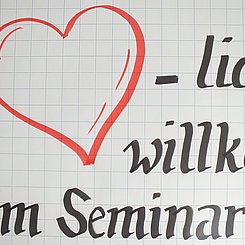 - lic
willk
m Seminar